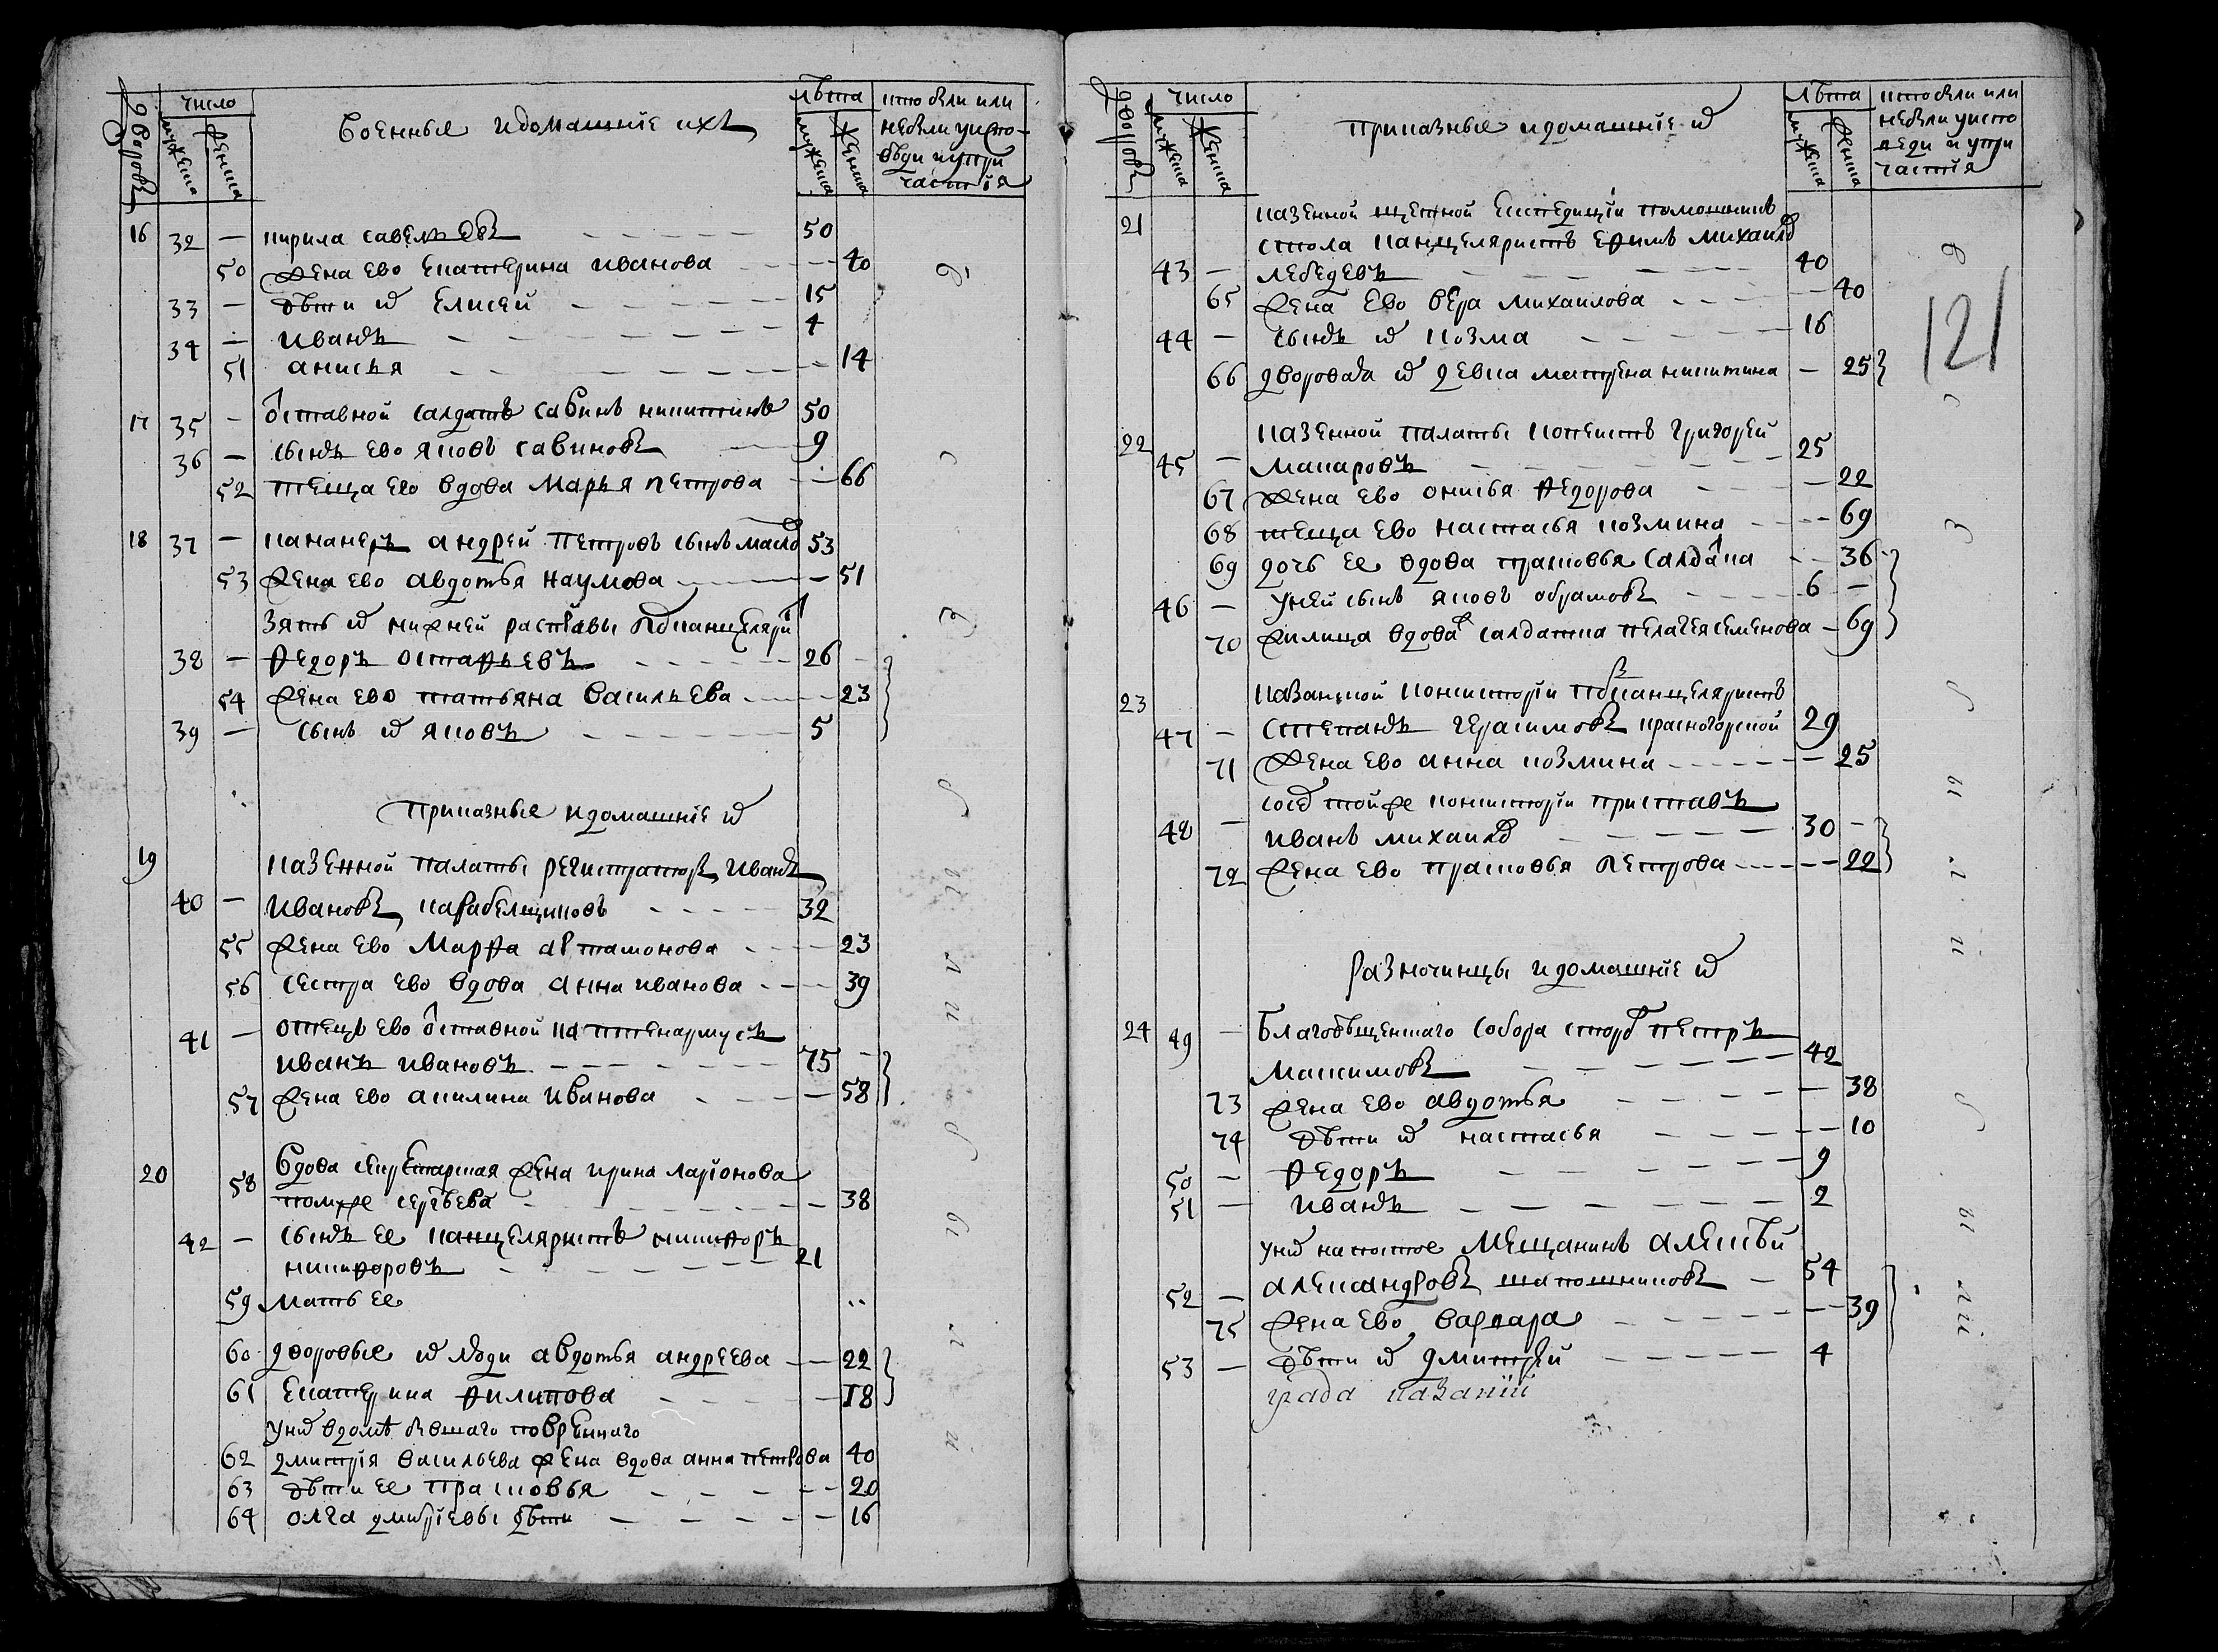 дворовъ
число
мужеска
женска
Военные и домашніе ихъ
лѣта
мужеска
женска
кто были или
небыли у испо-
вѣди и у при
частія
16 32 — кирила савельевъ 50
50 жена ево екатерина иванова 40
33 — дѣти их елисей 15
34 — иванъ 4
51 анисья 14
17 35 — отставной салдатъ савинъ никитинъ 50
36 — сынъ ево яковъ савиновъ 9
52 теща ево вдова марья петрова 66
18 37 — кананеръ андрей петровъ сынъ 53
53 жена ево авдотья наумова 51
зять их нижней расправы подканцеляри
38 — федоръ остафьевъ 26
54 жена ево татьяна васильева 23
39 — сынъ их яковъ 5
приказные и домашніе их
19
казенной палаты регистраторъ иванъ
40 — ивановъ карабелщиковъ 32
55 жена ево марфа артамонова 23
56 сестра ево вдова анна иванова 39
41 — отецъ ево отставной каптенармусъ
иванъ ивановъ 75
57 жена ево акилина иванова 58
20 58 вдова секретарская жена ирина ларіонова
38
42 — сынъ ее канцеляристъ никифоръ
никифоровъ 21
59 мать ее ..
60 дворовые их люди авдотья андреева 22
61 екатерина филипова 18
у них в домѣ бывшаго повереннаго
62 дмитрія васильева жена вдова анна петрова 40
63 дѣти ее прасковья 20
64 олга дмитріевы дѣти 16
были
были
дворовъ
число
мужеска
женска
приказные и домашніе их
лѣта
мужеска
женска
кто были или
небыли у испо
веди и у при
частія
121
21
казенной щетной експедиціи
стола канцеляристъ ефимъ михаилов
43 — лебедевъ 40
65 жена ево вера михаилова 40
44 — сынъ их козма 16
66 дворовая их девка матрена никитина 25
22
казенной палаты копеистъ григорей
45 — макаровъ 25
67 жена ево онисья федорова 22
68 теща ево настасья козмина 69
69 дочь ее вдова прасковья салдатка 36
46 — у ней сынъ яковъ абрамовъ 6
70 жилица вдова салдатка пелагея семенова 69
23
казанской консисторіи подканцеляристъ
47 — степанъ герасимовъ красногорской 29
71 жена ево анна козмина 25
той же консисторіи приставъ
48 — иванъ михаилов 30
72 жена ево прасковья петрова 22
разночинцы и домашніе их
24 49 — благовѣщенскаго собора сторож петръ
максимовъ 42
73 жена ево авдотья 38
74 дѣти их настасья 10
50 — федоръ 9
51 — иванъ 2
у них на постое мещанинъ алексѣй
52 — александровъ шапошниковъ 54
75 жена ево варвара 39
53 — дѣти их дмитрей 4
града казаніи
были
были